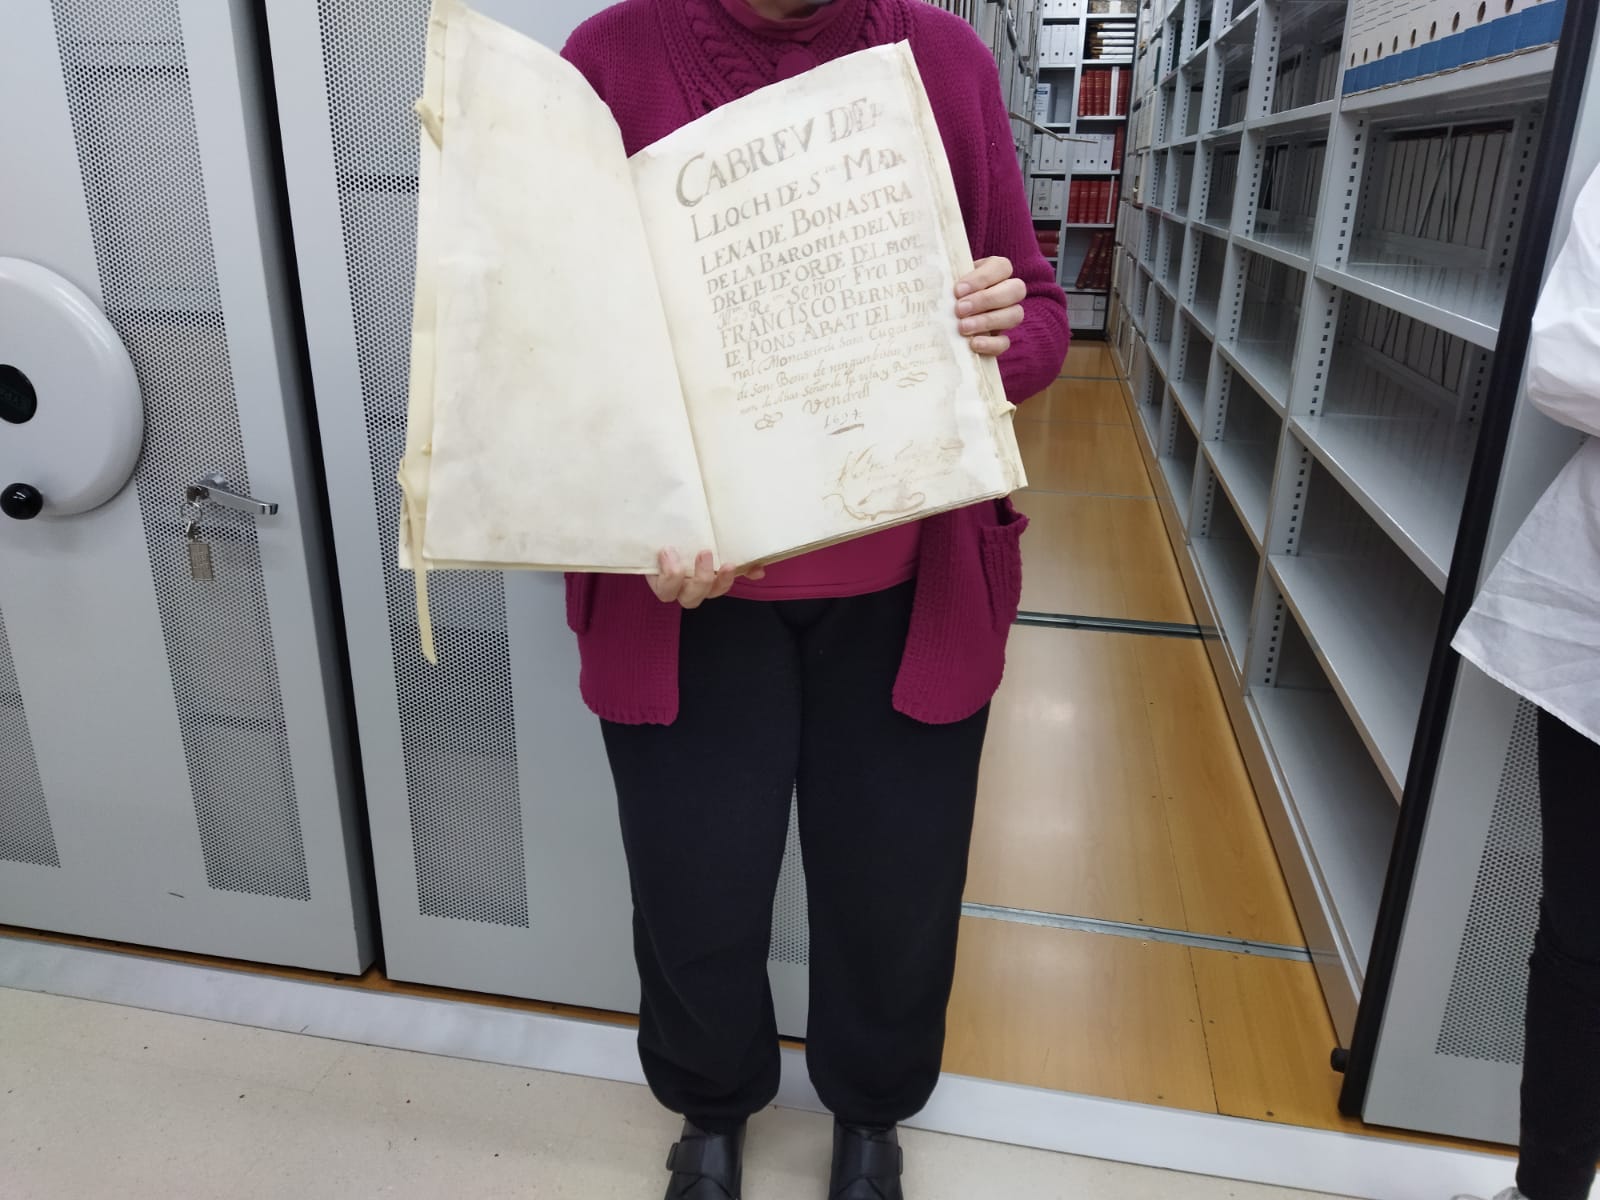 CABREV DEL
LLOCH DE S.ta MADA
LENA DE BONASTRA
DE LA BARONIA DEL VEN
DRELL DE ORDE DEL MOL
Re.m Señor FRA DON
FRANCISCO BERNARD
DE PONS ABAT DEL Impe
rial Monastir de Sant Cugat del
de Sant Benet de ningun bisbat y en
nom de Abat Señor de la vila y Baronia
Vendrell
1694